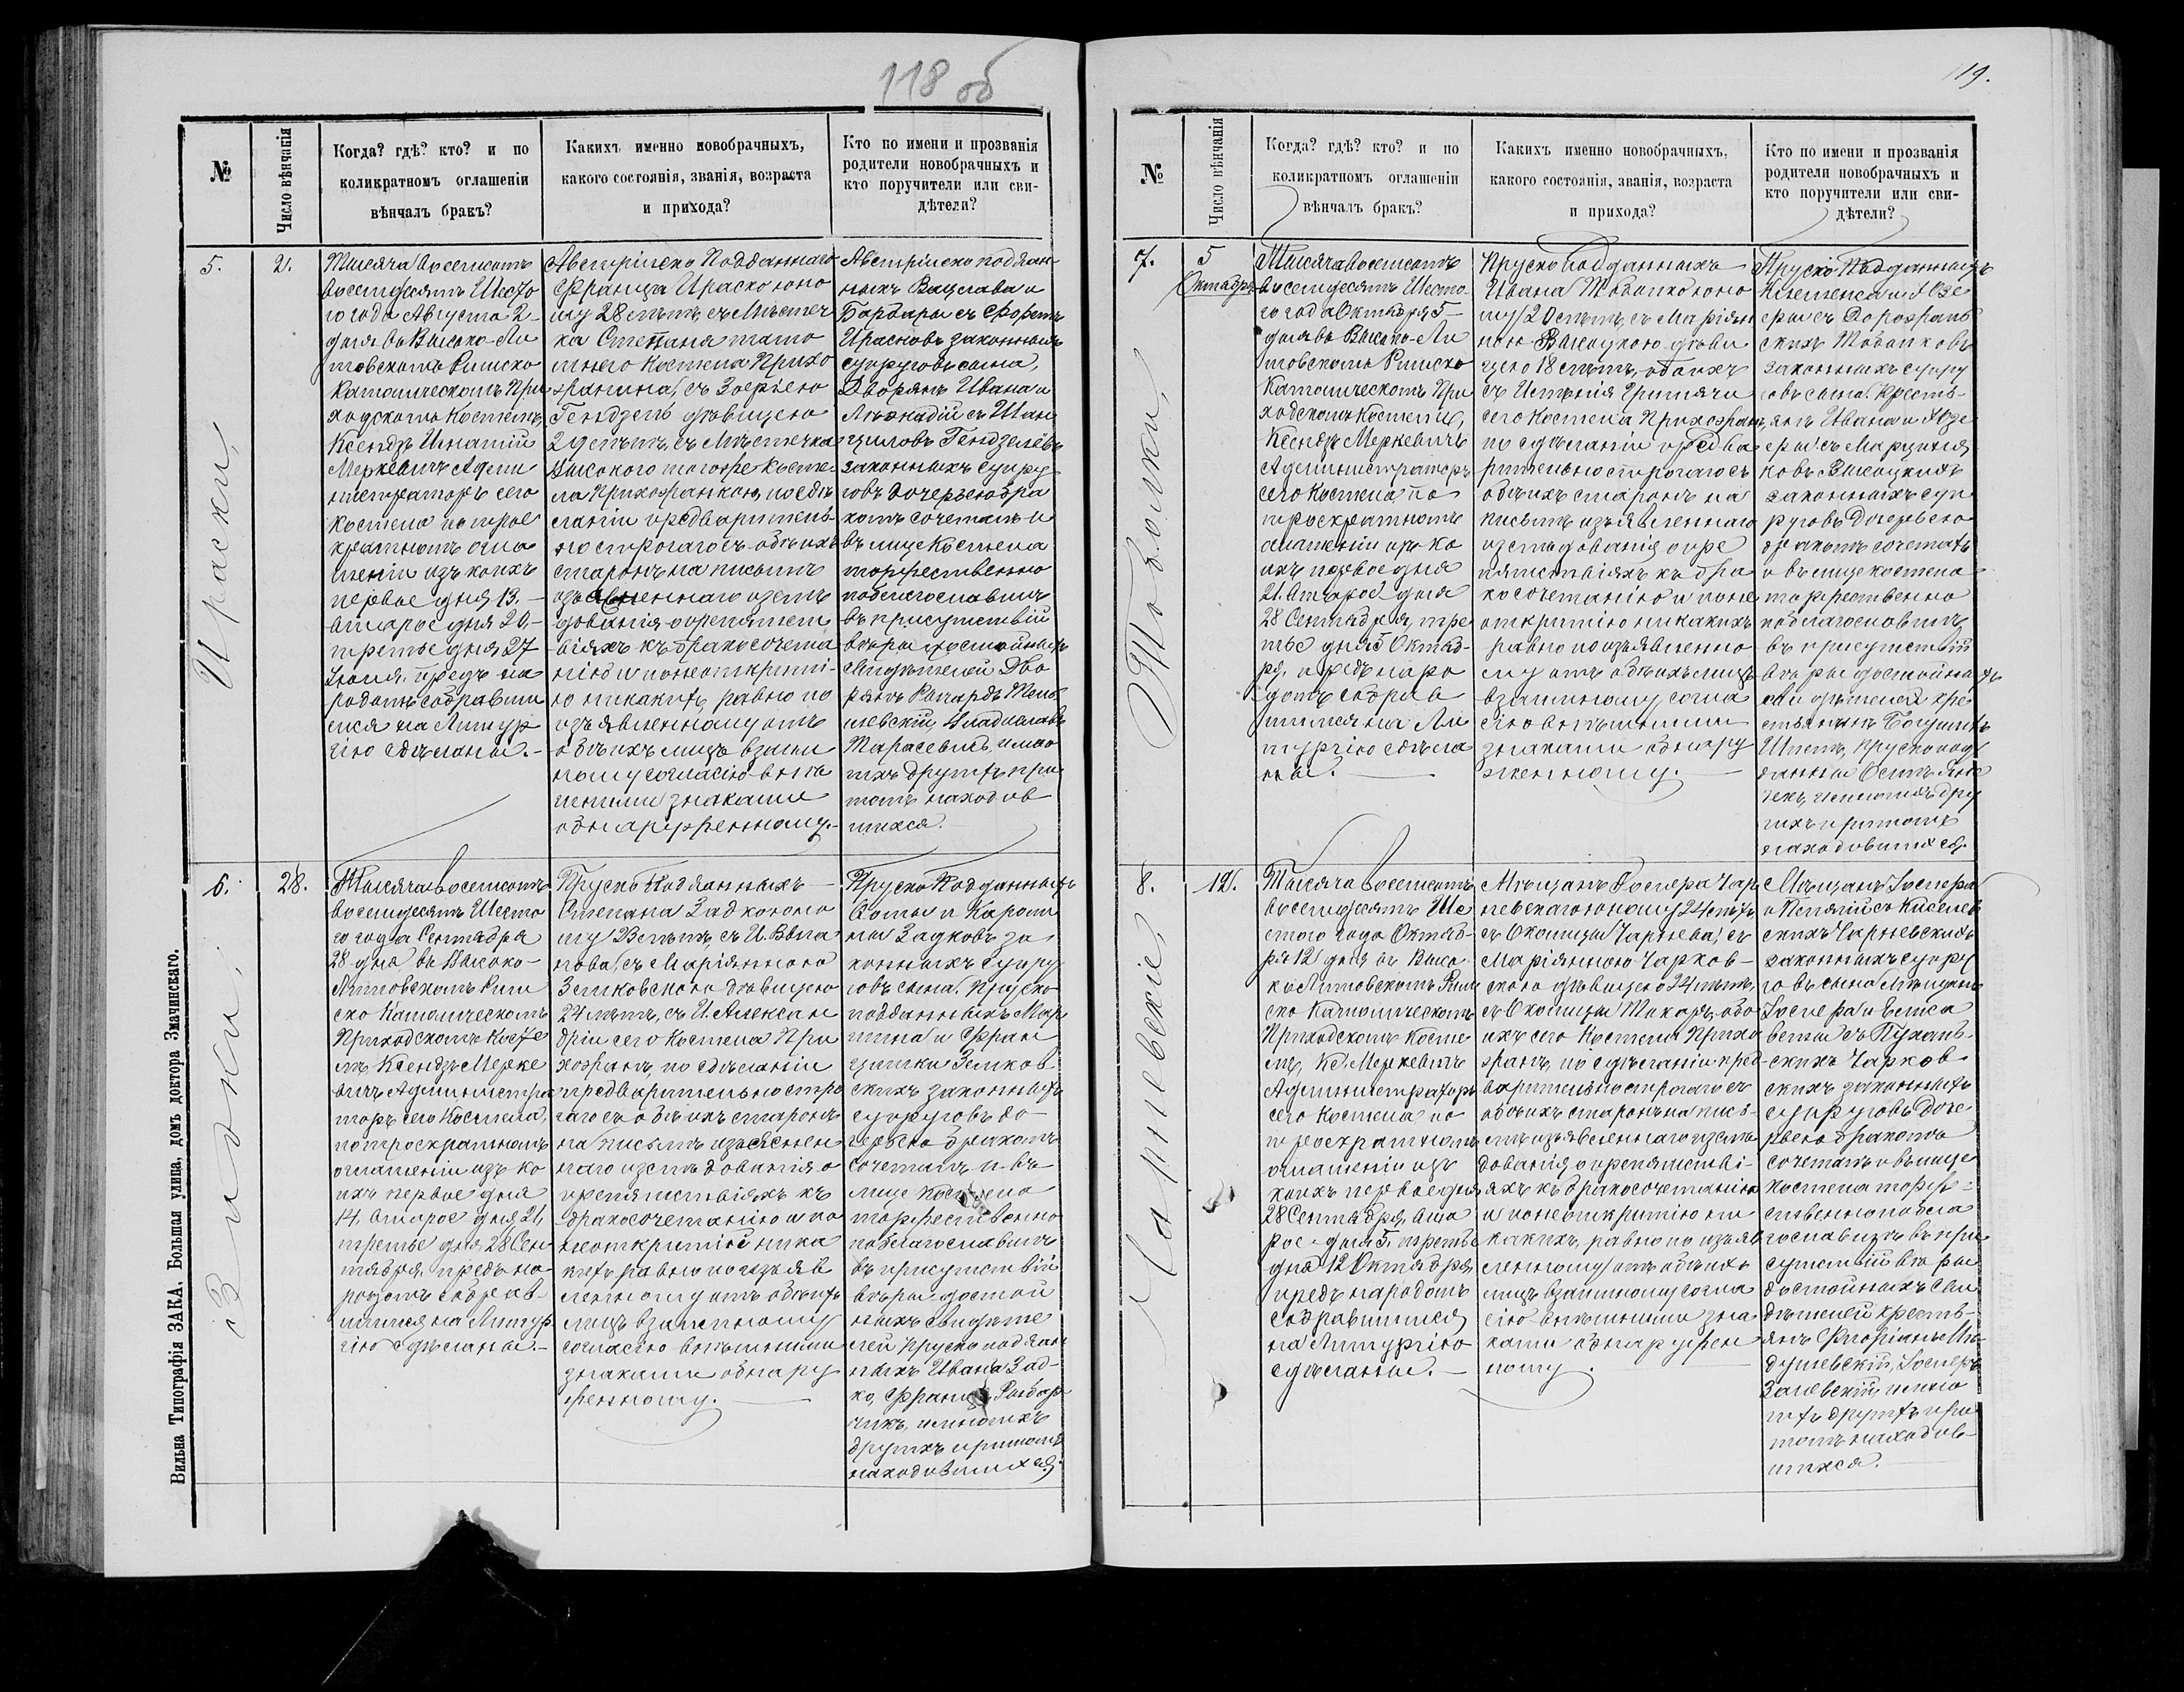 118 об
№
Число вѣнчанія
Когда? гдѣ? кто? и по
коликратномъ оглашеніи
вѣнчалъ бракъ?
Какихъ именно новобрачныхъ,
какого состоянія, званія, возраста
и прихода?
Кто по имени и прозванія
родители новобрачныхъ и
кто поручители или сви-
дѣтели?
5.
2.
Ираски,
Тысяча восемсотъ
восемдесятъ Шесто
го года Августа 2-
дня въ Высоко-Ли
товскомъ Римско
Католическомъ При
ходскомъ Костелѣ,
Ксендзъ Игнатій
Меркевичъ Адми
нистраторъ сего
Костела по трое
кратномъ огла
шеніи изъ коихъ
первое дня 13.-
второе дня 20.-
третье дня 27
Іюля, предъ на
родомъ собравши
мся на Литур
гію сдѣланы.-
Австрійско Подданнаго
Франца Ираско юно
шу 28 лѣтъ, съ Мѣстеч
ка
тнего Костела Прихо
жанина, съ Зофьею
Гендзель дѣвицею
лѣтъ, съ Мѣстечка
Высокого тогоже Косте
ла Прихожанкою, по сдѣ
ланіи предварительн
но строгаго съ обѣихъ
сторонъ на письмѣ
изъявленнаго изслѣ
дованія о препятст
віяхъ къ бракосочета
нію и по неоткрыті-
ю никакихъ, равно по
изъявленному отъ
обѣихъ лицъ взаим
ному согласію внѣ
шними знаками
обнаруженному.-
Австрійско поддан-
ныхъ Вацлава и
Барбары съ
Ирасковъ законныхъ
супруговъ сына,
Дворянъ Ивана и
съ Шан
Гендзелёвъ
законныхъ супру
говъ дочерью бра
комъ сочеталъ и
въ лице Костела
торжественно
поблагословилъ
въ присутствій
вѣры достойныхъ
Свидѣтелей Дво
рянъ Рихардъ
Владиславъ
Тарасевичъ, и мно
гихъ другихъ при
томъ находив
шихся.
6.
28.
Задки,
Тысяча восемсотъ
восемдесятъ Шесто
го года Сентября
28 дня въ Высоко-
Литовскомъ Рим
ско Католическомъ
Приходскомъ Косте
лѣ Ксендзъ Мерке
вичъ Администра
торъ сего Костела,
по троекратномъ
оглашеніи изъ ко
ихъ первое дня
14, второе дня 21,
третье дня 28 Сен
тября предъ на-
родомъ собрав-
шимся на Литур
гію сдѣланы.-
Пруско Подданныхъ-
Степана Задко юно
шу 23 лѣтъ, съ И.
съ Маріянною
Земковскою дѣвицею
24 лѣтъ, съ И. Алексан
дріи сего Костела При
хожанъ, по сдѣланіи
предварительно стро
гаго съ обѣихъ сторонъ
на письмѣ
наго изслѣдованія о
препятствіяхъ къ
бракосочетанію и по
неоткрытіи ника
кихъ, равно по изъяв
ленному отъ обѣихъ
лицъ взаимному
согласію внѣшними
знаками обнару
женному.
Пруско Подданныхъ
Ѳомы и Кароли
ны Задковъ за
конныхъ супру
говъ сына. Пруско
подданныхъ Мар
тина и Фран
цишки Земков
скихъ законныхъ
супруговъ до-
черью бракомъ
сочеталъ и въ
лице Костела
торжественно
поблагословилъ
въ присутствій
вѣры достой
ныхъ Свидѣте
лей Пруско поддан
ныхъ Ивана Зад-
ко,
и многихъ
другихъ притомъ
находившихся.
Вильна Типографія ЗАКА. Большая улица, домъ доктора Змачинскаго.
119.
№
Число вѣнчанія
Когда? гдѣ? кто? и по
коликратномъ оглашеніи
вѣнчалъ бракъ?
Какихъ именно новобрачныхъ,
какого состоянія, званія, возраста
и прихода?
Кто по имени и прозванія
родители новобрачныхъ и
кто поручители или сви-
дѣтели?
7.
5
Октября
Тобалки,
Тысяча восемсотъ
восемдесятъ Шесто
го года Октября 5-
дня въ Высоко-Ли
товскомъ Римско
Католическомъ При
ходскомъ Костелѣ,
Ксендзъ Меркевичъ
Администраторъ
сего Костела по
троекратномъ
оглашеніи изъ ко
ихъ первое дня
21. второе дня
28 Сентября, тре
тье дня 5 Октяб-
ря, предъ наро
домъ собрав
шимся на Ли
тургію сдѣла
ны.
Пруско подданныхъ
Ивана Тобалко юно
шу 20 лѣтъ, съ Маріян
ною Высоцкою дѣви
цею 18 лѣтъ, обоихъ
съ Имѣнія
сего Костела Прихожанъ,
по сдѣланіи предва
рительно строгаго съ
обѣихъ сторонъ на
письмѣ изъявленнаго
изслѣдованія о пре
пятствіяхъ къ бра
косочетанію и по не
открытію никакихъ
равно по изъявленно
му отъ обѣихъ лицъ
взаимному согла
сію внѣшними
знаками обнару
женному.
Пруско Подданныхъ
Клеменса и Юзе
фы съ
Тобалковъ
законныхъ супру
говъ сына. Кресть-
янъ Ивана и Юзе
фы съ
ковъ Высоцкихъ
законныхъ суп
руговъ дочерью
бракомъ сочеталъ
и въ лице костела
торжественно
поблагословилъ
въ присутствіи
вѣры достойныхъ
свидѣтелей кре
стьянинъ
Пруско под
данный
и многихъ дру
гихъ притомъ
находившихся.
8.
12.
Чарневскіе,
Тысяча восемсотъ
восемдесятъ Ше
стого года Октяб-
ря 12 дня въ Высо
ко Литовскомъ Рим
ско Католическомъ
Приходскомъ Косте
лѣ, Кс. Меркевичъ
Администраторъ
сего Костела по
троекратномъ
оглашеніи изъ
коихъ первое дня
28 Сентября, вто
рое дня 5. третье
дня 12 Октября
предъ народомъ
собравшимся
на Литургію
сдѣланы.-
Мѣщанъ Іосифа Чар
невскаго юношу 24 лѣтъ,
съ Околицы Чарнева, съ
Маріянною Чарков-
скою дѣвицею 24 лѣтъ,
съ Околицы Токари, обо
ихъ сего Костела Прихо
жанъ, по сдѣланіи пред-
варительно строгаго съ
обоихъ сторонъ на пись-
мѣ изъявленнаго изслѣ
дованія о препятстві-
яхъ къ бракосочетанію
и по неоткрытію ни
какихъ, равно по изъяв
ленному отъ обѣихъ
лицъ взаимному согла
сію внѣшними зна
ками обнаружен
ному.
Мѣщанъ Іосифа
и съ Киселев
скихъ Чарневскихъ
законныхъ супру
говъ сына Мѣщанъ
Іосифа и Елиса
веты съ
скихъ Чарков
скихъ законныхъ
супруговъ доче
рью бракомъ
сочеталъ и въ лице
Костела торже-
ственно поблаго
гословилъ въ при
сутствій вѣры
достойныхъ Сви
дѣтелей кресть-
янъ Флоріанъ
Іосифъ
и мно
гихъ другихъ при
томъ находив-
шихся.